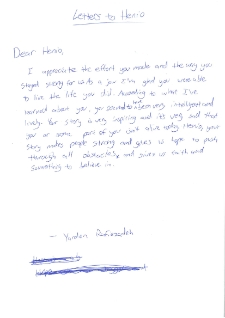 Letters to Henio
Dear Henio,
I appreciate the effort you made and the way you
stayed strong for such a
I'm glad you were able
to live the life you did. According to what I've
learned about you, you seemed to have been very intelligent and
lively. Your story is very inspiring and its very sad that
you or some part of you isn't alive today. Henio, your
story makes people strong and gives us hope to push
through all obstacles and gives us faith and
something to believe in.